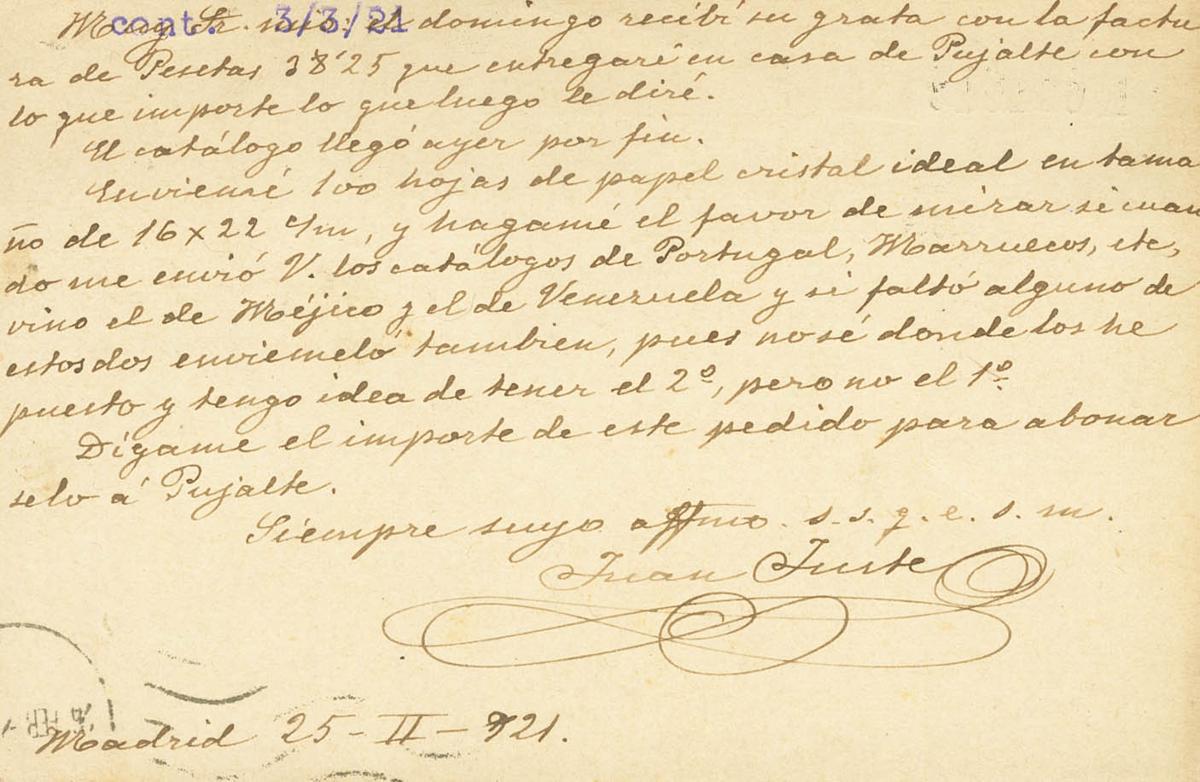 cont. 3/3/21
Muy Sr. mio: el domingo recibí su grata con la factu
ra de Pesetas 38'25 que entregaré en casa de Pujalte con
lo que importe lo que luego le diré.
El catálogo llegó ayer por fin.
Enviemé 100 hojas de papel cristal ideal en tama
ño de 16 x 22 c/m, y hagamé el favor de mirar si cuan
do me envió V. los catálogos de Portugal, Marruecos, etc,
vino el de Méjico y el de Venezuela y si faltó alguno de
estos dos enviemeló tambien, pues no sé donde los he
puesto y tengo idea de tener el 2º, pero no el 1º.
Dígame el importe de este pedido para abonar
selo á Pujalte.
Siempre suyo affmo. s. s. q. e. s. m.
Juan Juste
Madrid 25 - II - 921.